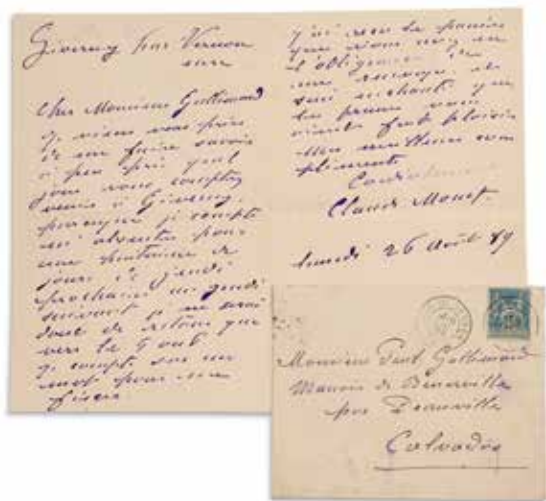 Giverny par Vernon
eure
Cher Monsieur Gallimard
Je viens vous prier
de me faire savoir
à peu près quel
jour vous comptez
venir à Giverny,
parceque je compte
m'absenter pour
une huitaine de
jours de jeudi
prochain au jeudi
suivant je ne serai
donc de retour que
vers le 5 aout
je compte sur un
mot pour me
fixer.
j'ai reçu le panier
que vous
l'obligeance de
me envoyer et
suis enchanté que
les prunes vous
aient fait plaisir
Mes meilleurs com
pliments
Cordialement
Claude Monet
lundi 26 août 89
Monsieur Paul Gallimard
Manoir de Benerville
par Deauville
Calvados